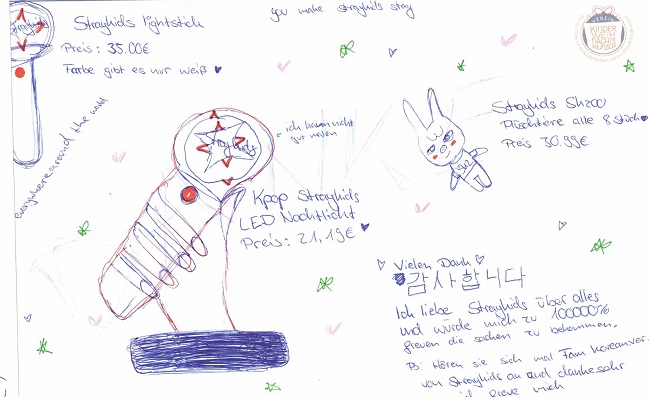 you make straykids stay
Straykids lightstick
Preis: 35.00€
Farbe gibt es nur weiß
Straykids
everywhere around the world
VEREIN
KINDER
WEIH
NACHTS
WUNSCH
ich kann nicht
gut malen
Straykids
Kpop Straykids
LED Nachtlicht
Preis: 21,19€
Straykids Skzoo
Plüschtiere alle 8 Stück
Preis 30.99€
SKZ
Vielen Dank
감사합니다
Ich liebe Straykids über alles
und würde mich zu 100000%
freuen die sachen zu bekommen,
Ps: Hören sie sich mal Fam koreanver.
von Straykids an und dankesehr
ich freue mich